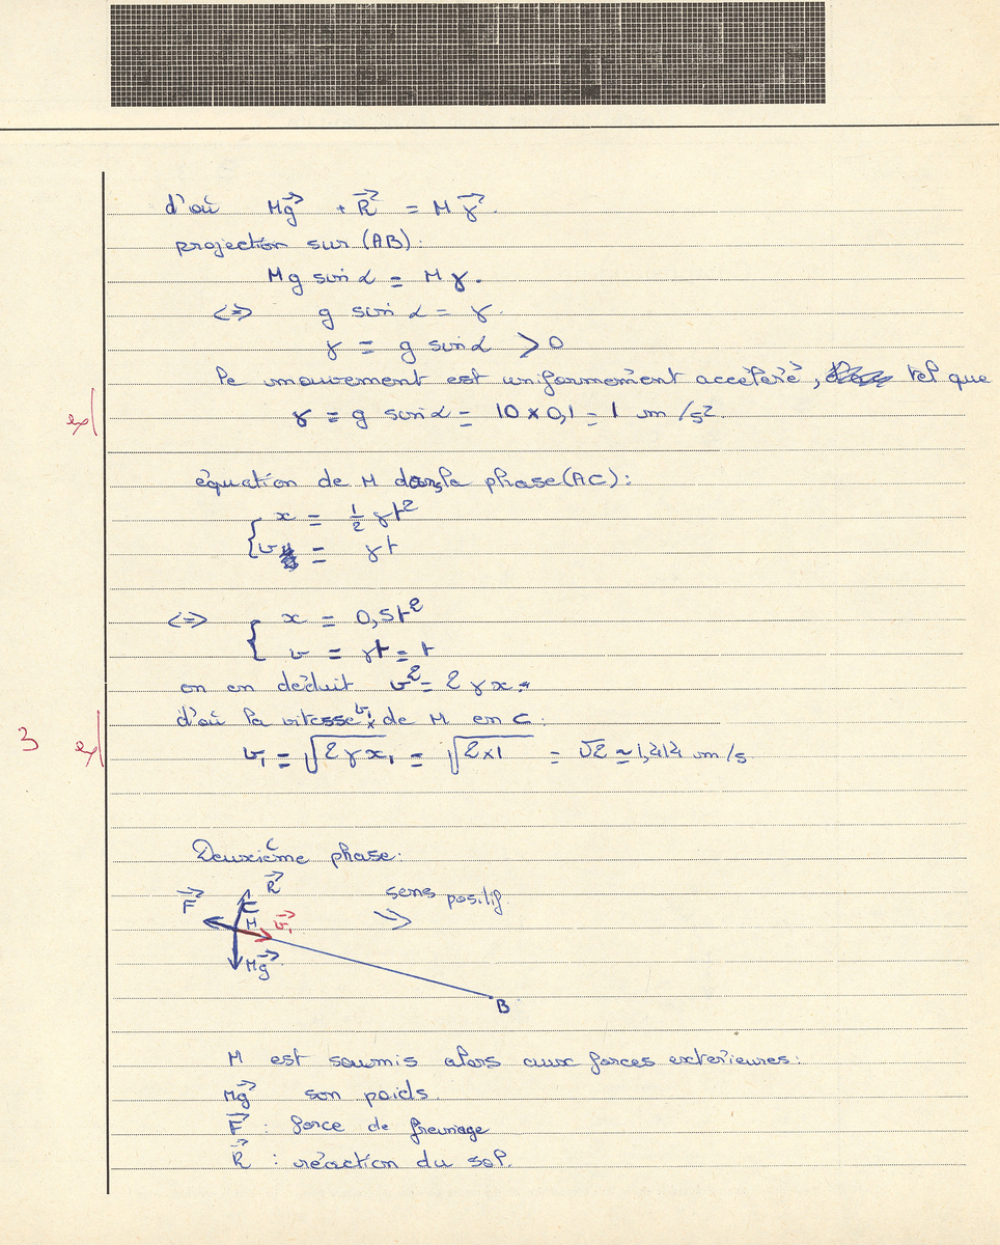 d'où Mg⃗ + R⃗ = M γ⃗.
projection sur (AB):
Mg sin α = M γ.
<=> g sin α = γ.
γ = g sin α > 0
le mouvement est uniformément accéléré, tel que
γ = g sin α = 10 × 0,1 = 1 m/s².
équation de M dans la phase (AC):
{ x = 1/2 γt²
v = γt
<=> { x = 0,5t²
v = γt = t
on en déduit v² = 2 γ x.
d'où la vitesse v₁ de M en C:
3
v₁ = √(2γx₁) = √(2×1) = √2 ≃ 1,414 m/s.
Deuxième phase:
R⃗
sens positif
F⃗
C
M
v⃗₁
Mg⃗
B
M est soumis alors aux forces extérieures:
Mg⃗ son poids.
F⃗ : force de freinage
R⃗ : réaction du sol.